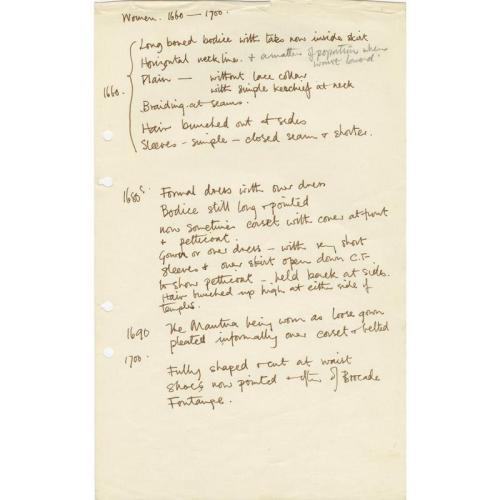 Women. 1660 — 1700.
Long boned bodice with tabs now inside skirt
Horizontal neckline. + a matter of proportion where waist lowered.
1660. Plain — without lace collar
with simple kerchief at neck
Braiding at seams.
Hair bunched out at sides
Sleeves - simple - closed seam & shorter.
1680s. Formal dress with over dress
Bodice still long & pointed
now sometimes corset with cover at front
& petticoat.
Gown or over dress - with very short
sleeves & over skirt open down C.F.
to show petticoat - held back at sides.
Hair bunched up high at either side of
temples.
1690 The Mantua being worn as loose gown
pleated informally over corset & belted
1700. Fully shaped & cut at waist
Shoes now pointed & often of Brocade
Fontange.